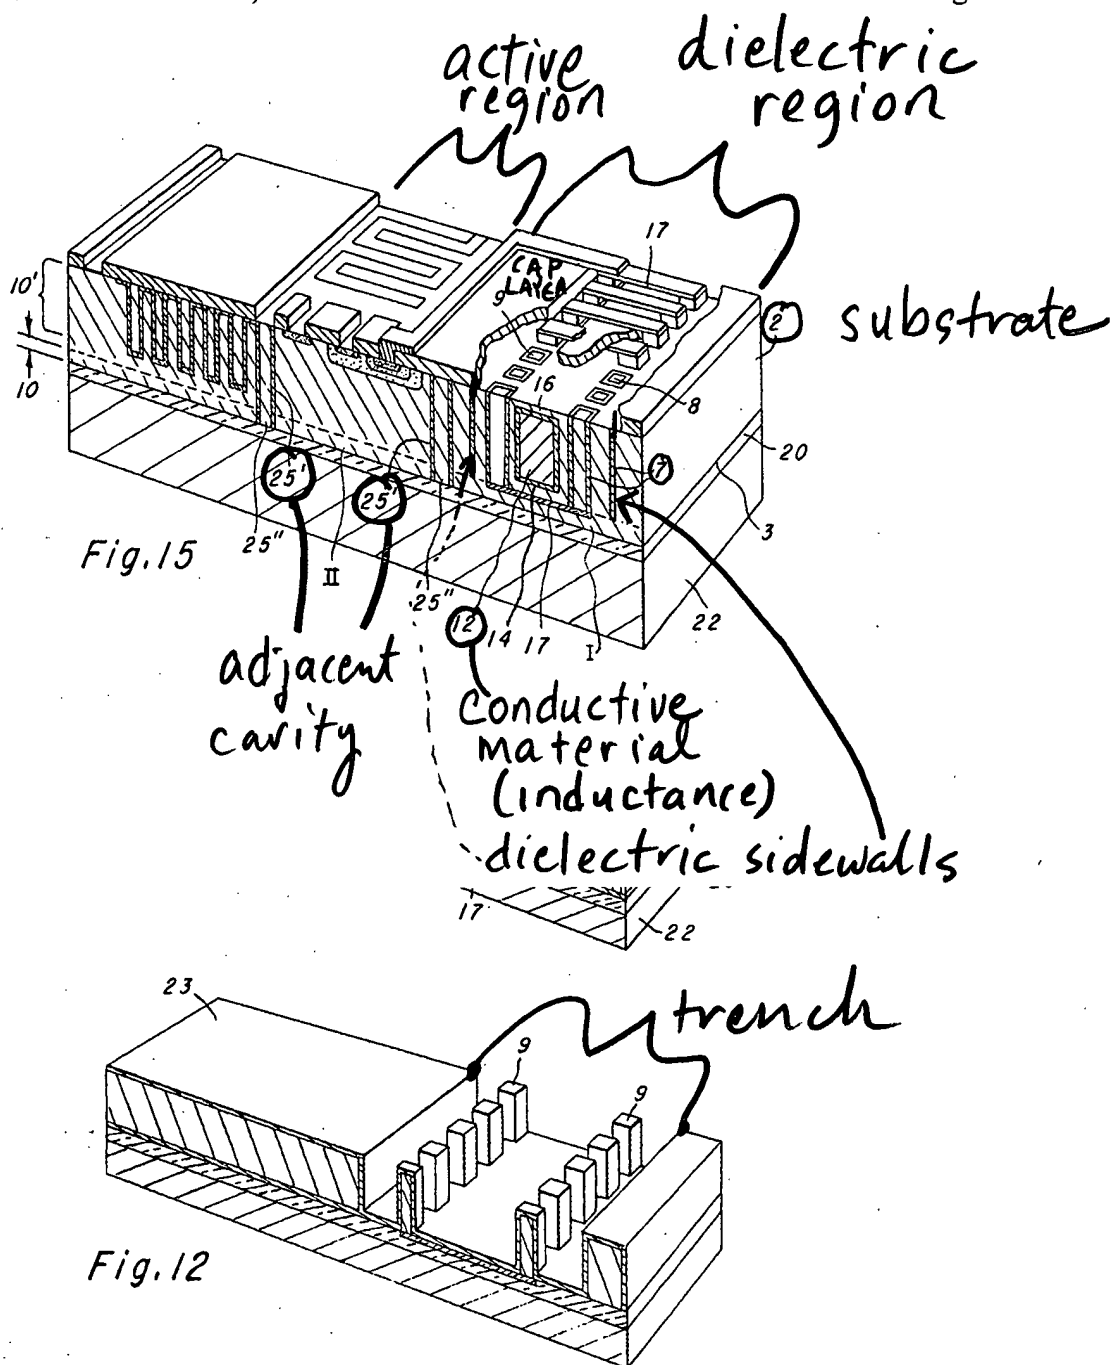 active
region
dielectric
region
17
CAP
LAYER
9
10'
10
2
substrate
16
8
7
20
3
25'
25'
25"
II
25"
12
14
17
I
22
Fig.15
adjacent
cavity
conductive
material
(inductance)
dielectric sidewalls
17
22
trench
23
9
9
Fig.12